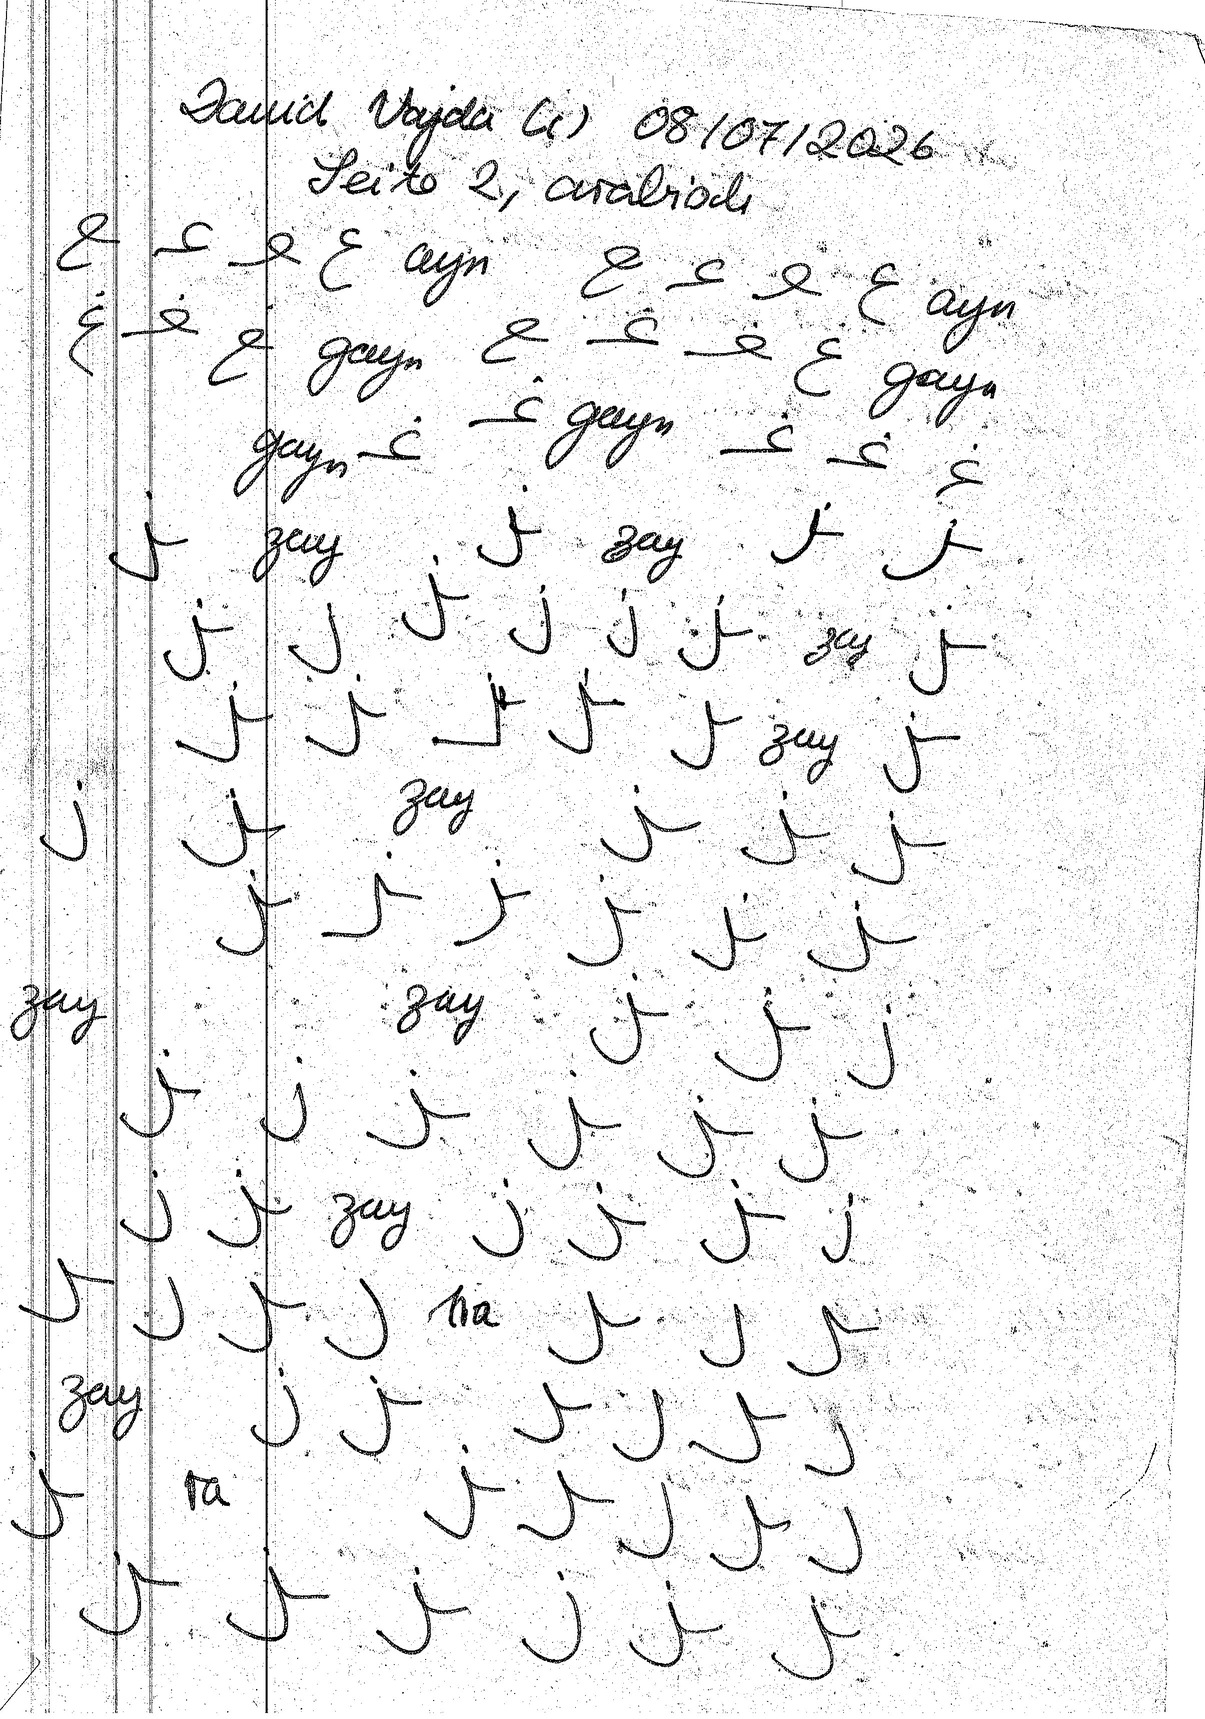 David Vajda (1) 08/07/2026
Seite 2, arabisch
ع ـع ـعـ عـ ayn ع ـع ـعـ عـ ayn
غ ـغـ ـغ gayn غ ـغـ غـ ـغ gayn
gayn غـ غـ gayn غـ غـ غـ
ـز zay ـز zay ـز ـز
ـز ز ـز ز ز ـز zay ـز
ـز ـز ـز ـز ـز zay ـز
ز ـز zay ـز ـز ـز
ـز ـز ـز ـز ـز ـز
zay zay ـز ـز ز
ـز ز ـز ـز ـز ـز
ز ـز zay ز ـز ـز ز
ـر ر ـر ر ra ـر ر ـر
zay ز ـز ـر ر ـر ر
ـز ra ـز ـر ر ـر ر
ـز ـز ـز ز ـز ـز